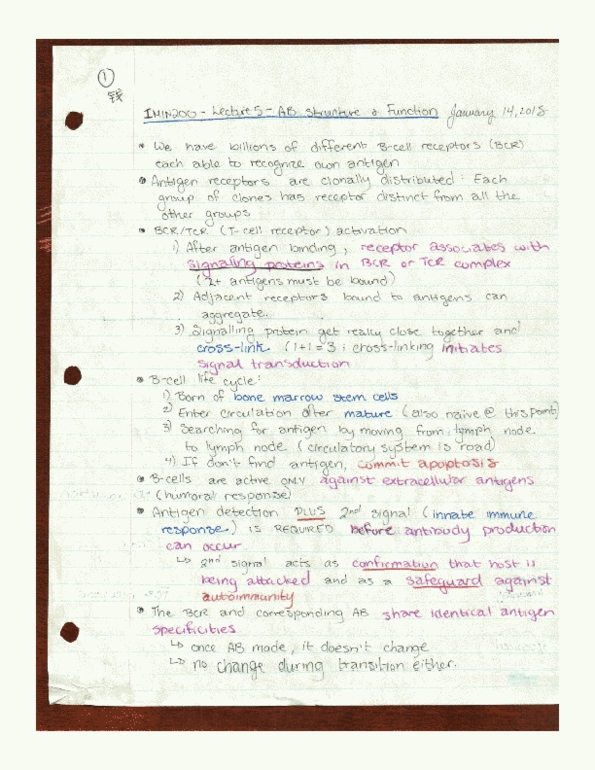 ①
IMIN200 - Lecture 5 - AB Structure & Function January 14, 2018
• We have billions of different B-cell receptors (BCR)
each able to recognize own antigen
• Antigen receptors are clonally distributed: Each
group of clones has receptor distinct from all the
other groups
• BCR/TCR (T-cell receptor) activation
1) After antigen binding, receptor associates with
signaling proteins in BCR or TCR complex
(2+ antigens must be bound)
2) Adjacent receptors bound to antigens can
aggregate.
3) Signalling protein get really close together and
cross-link (1+1=3; cross-linking initiates
signal transduction
• B-cell life cycle:
1) Born of bone marrow stem cells
2) Enter circulation after mature (also naive @ this point)
3) Searching for antigen by moving from lymph node
to lymph node. (circulatory system is road)
4) If don't find antigen, commit apoptosis
• B-cells are active ONLY against extracellular antigens
(humoral response)
• Antigen detection PLUS 2nd signal (innate immune
response) IS REQUIRED before antibody production
can occur
↳ 2nd signal acts as confirmation that host is
being attacked and as a safeguard against
autoimmunity
• The BCR and corresponding AB share identical antigen
specificities
↳ once AB made, it doesn't change
↳ no change during transition either.